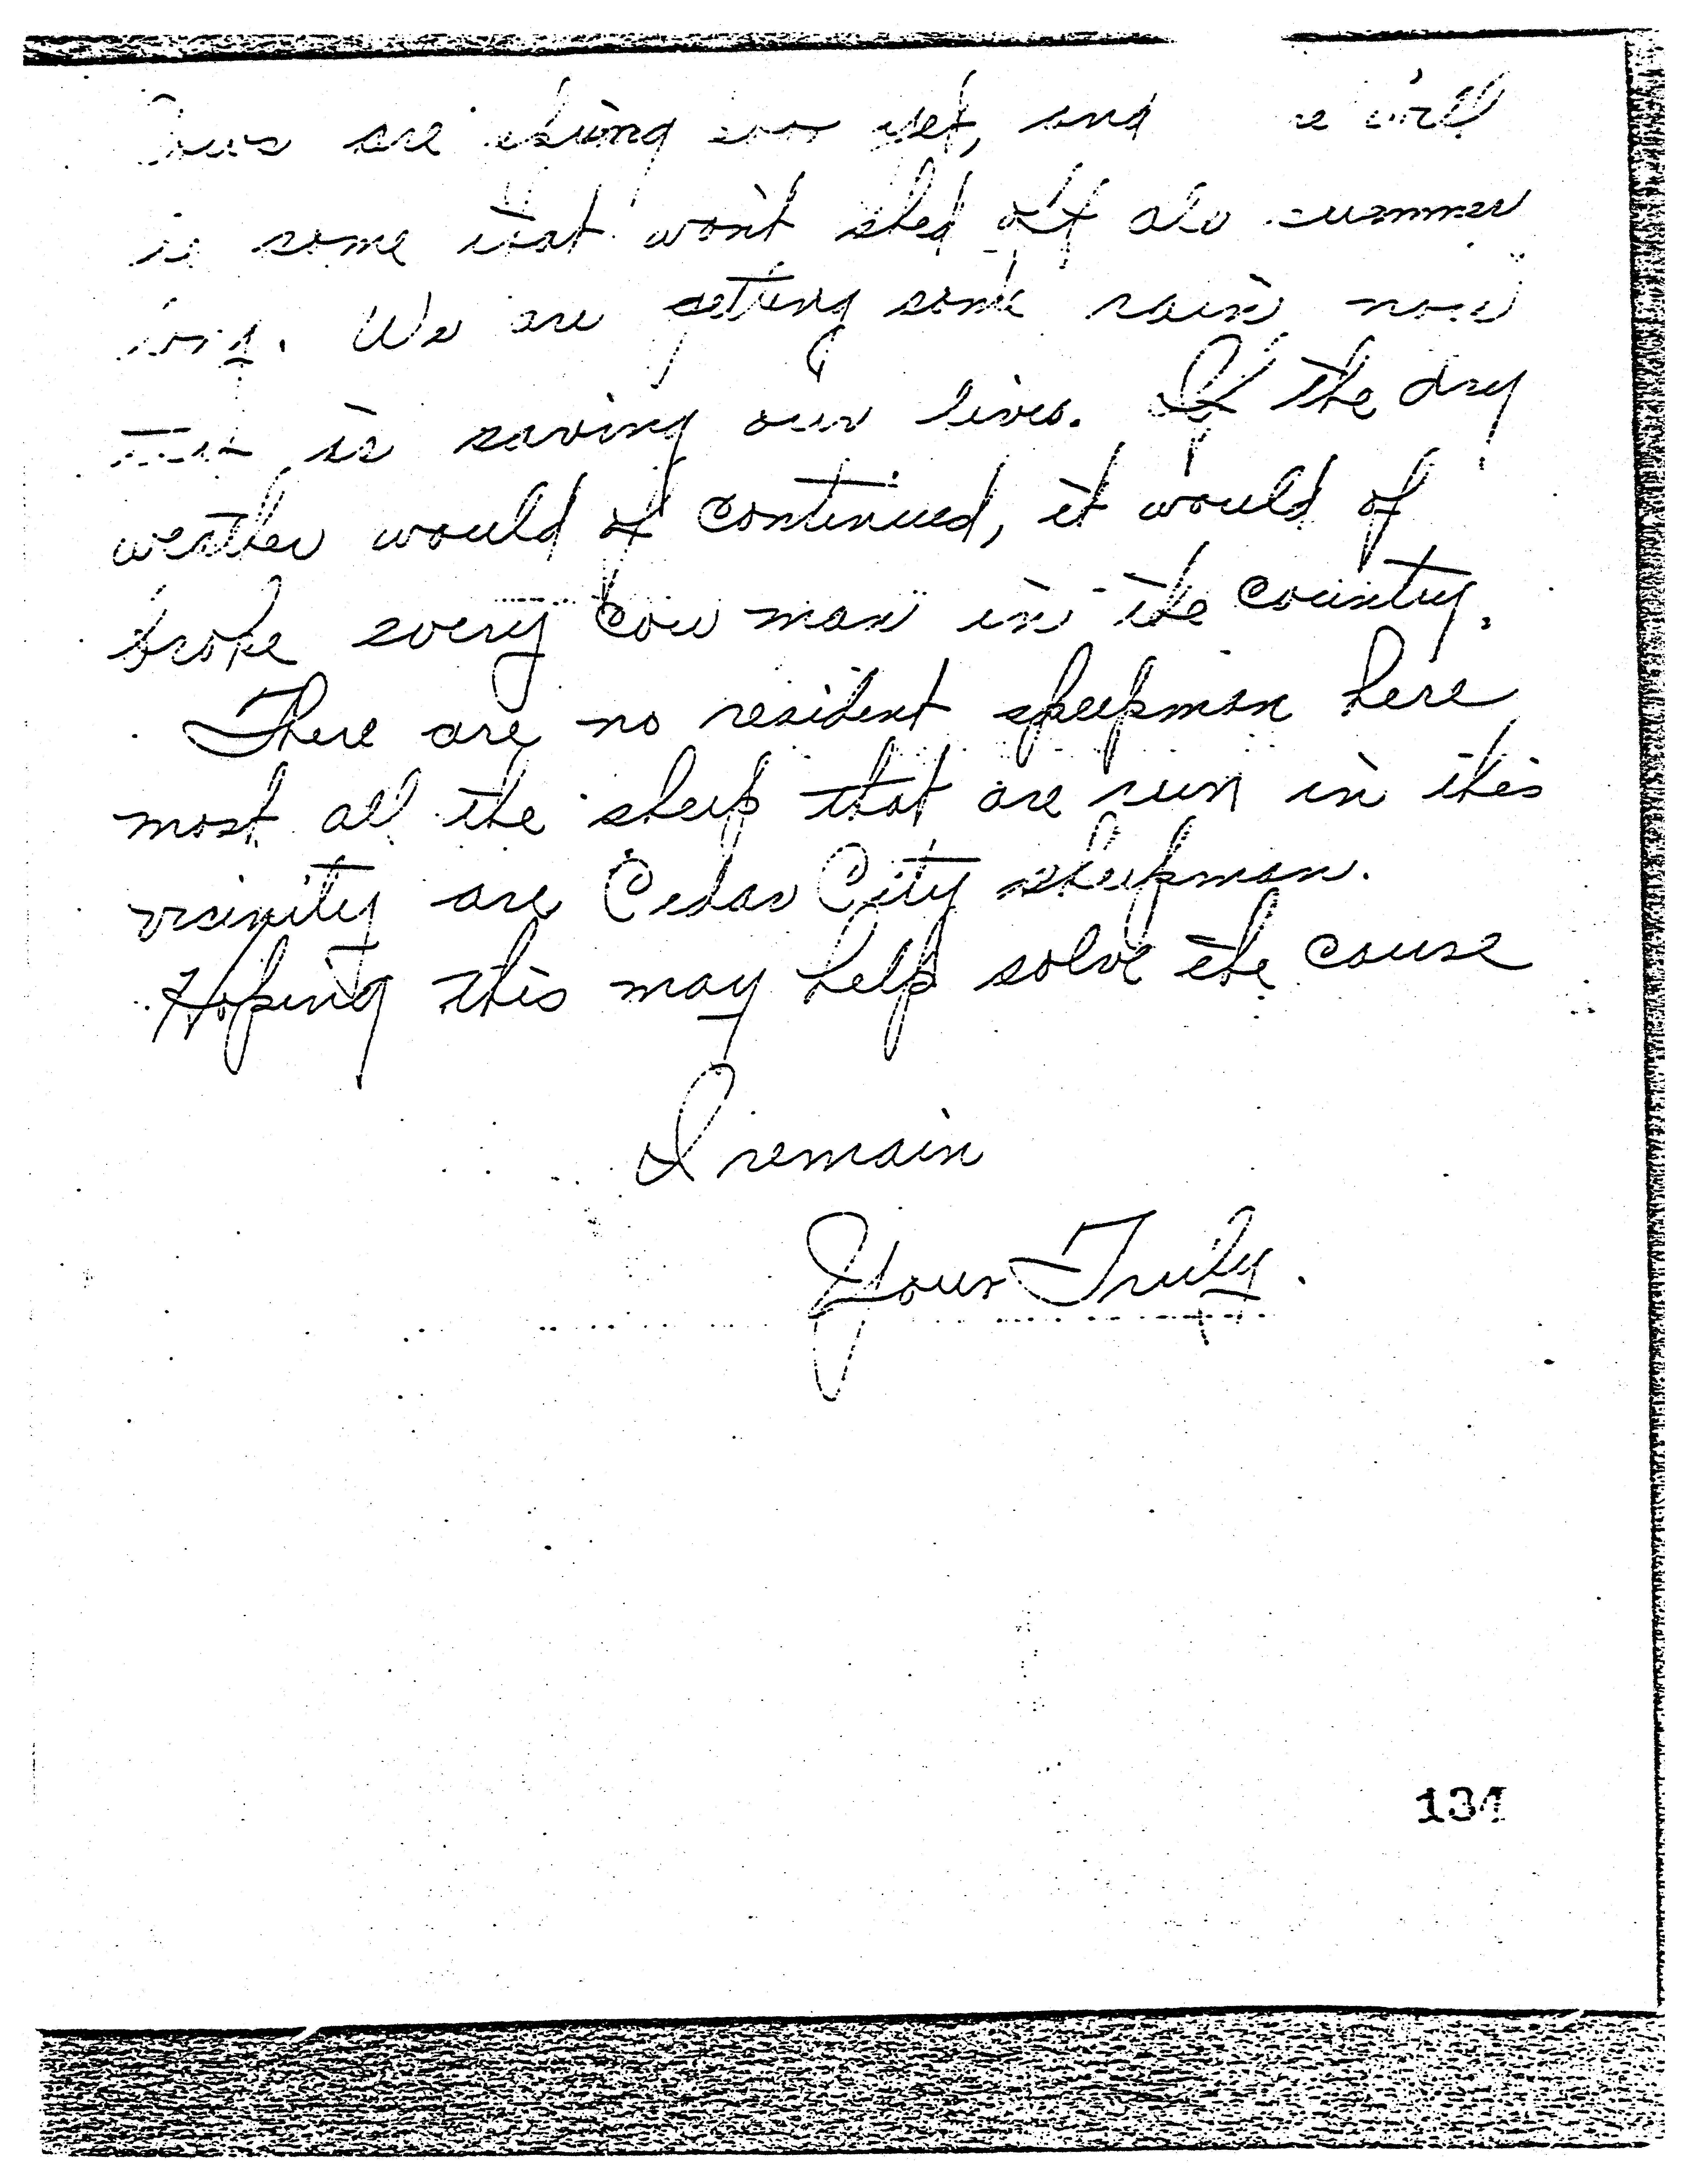 Cows are dying even yet, and will
is some that wont shed off all summer
long. We are getting some rain now
that is saving our lives. If the dry
weather would of continued, it would of
broke every cow man in the country.
There are no resident sheepman here
most all the sheep that are run in this
vicinity are Cedar City sheepman.
Hoping this may help solve the cause
I remain
Yours Truly.
134